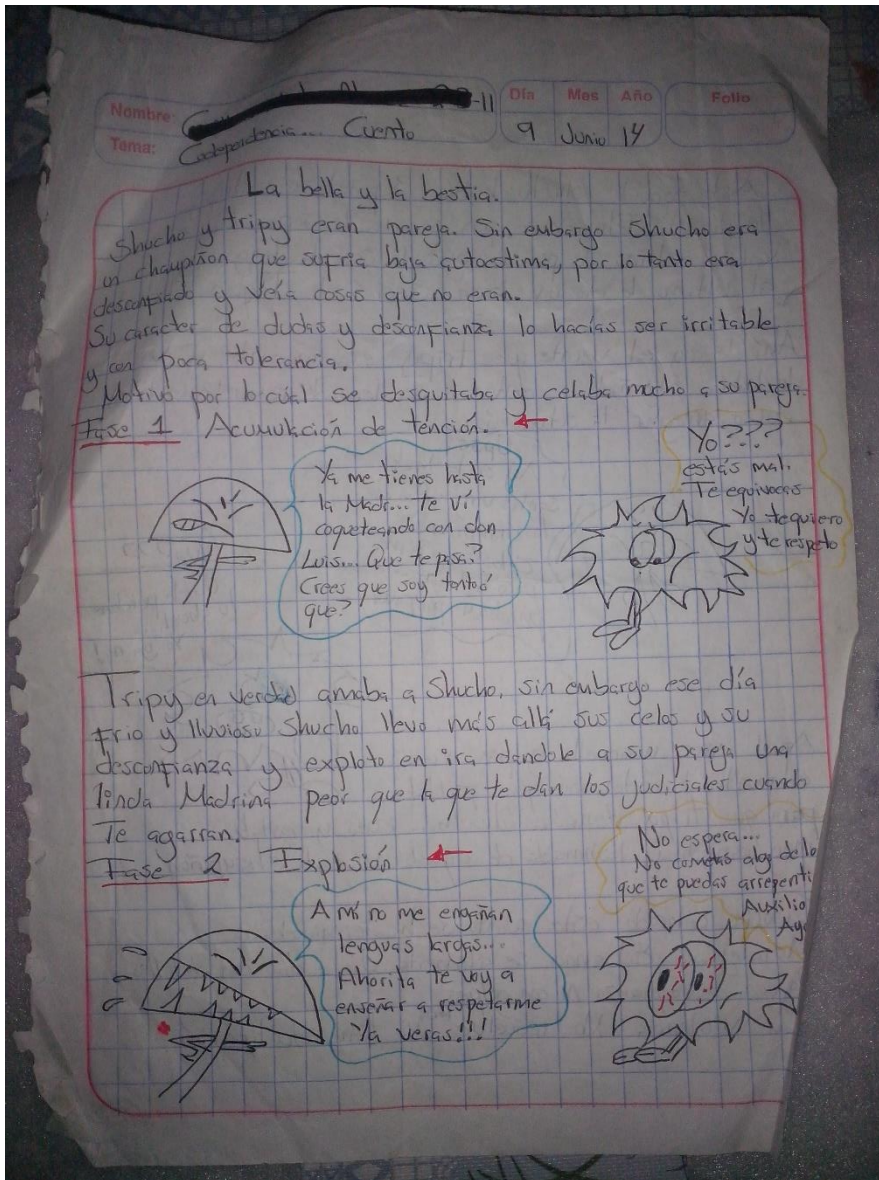 Nombre: -11
Día Mes Año
Folio
Tema: Codependencia... Cuento
9 Junio 14
La bella y la bestia.
Shucho y tripy eran pareja. Sin embargo Shucho era
un champiñon que sufria baja autoestima, por lo tanto era
desconfiado y veía cosas que no eran.
Su caracter de dudas y desconfianza lo hacias ser irritable
y con poca tolerancia.
Motivo por lo cuál se desquitaba y celaba mucho a su pareja.
Fase 1 Acumulación de tención.
Ya me tienes hasta
la Madr... te ví
coqueteando con don
Luis... Que te pasa?
Crees que soy tonto ó
que?
Yo???
estás mal.
Te equivocas
Yo te quiero
y te respeto
Tripy en verdad amaba a Shucho, sin embargo ese día
frio y lluvioso Shucho llevo más allá sus celos y su
desconfianza y exploto en ira dandole a su pareja una
linda Madrina peor que la que te dan los judiciales cuando
Te agarran.
Fase 2 Explosión
A mí no me engañan
lenguas largas...
Ahorita te voy a
enseñar a respetarme
Ya veras!!!
No espera...
No cometas algo de lo
que te puedas arrepenti
Auxilio
Ay